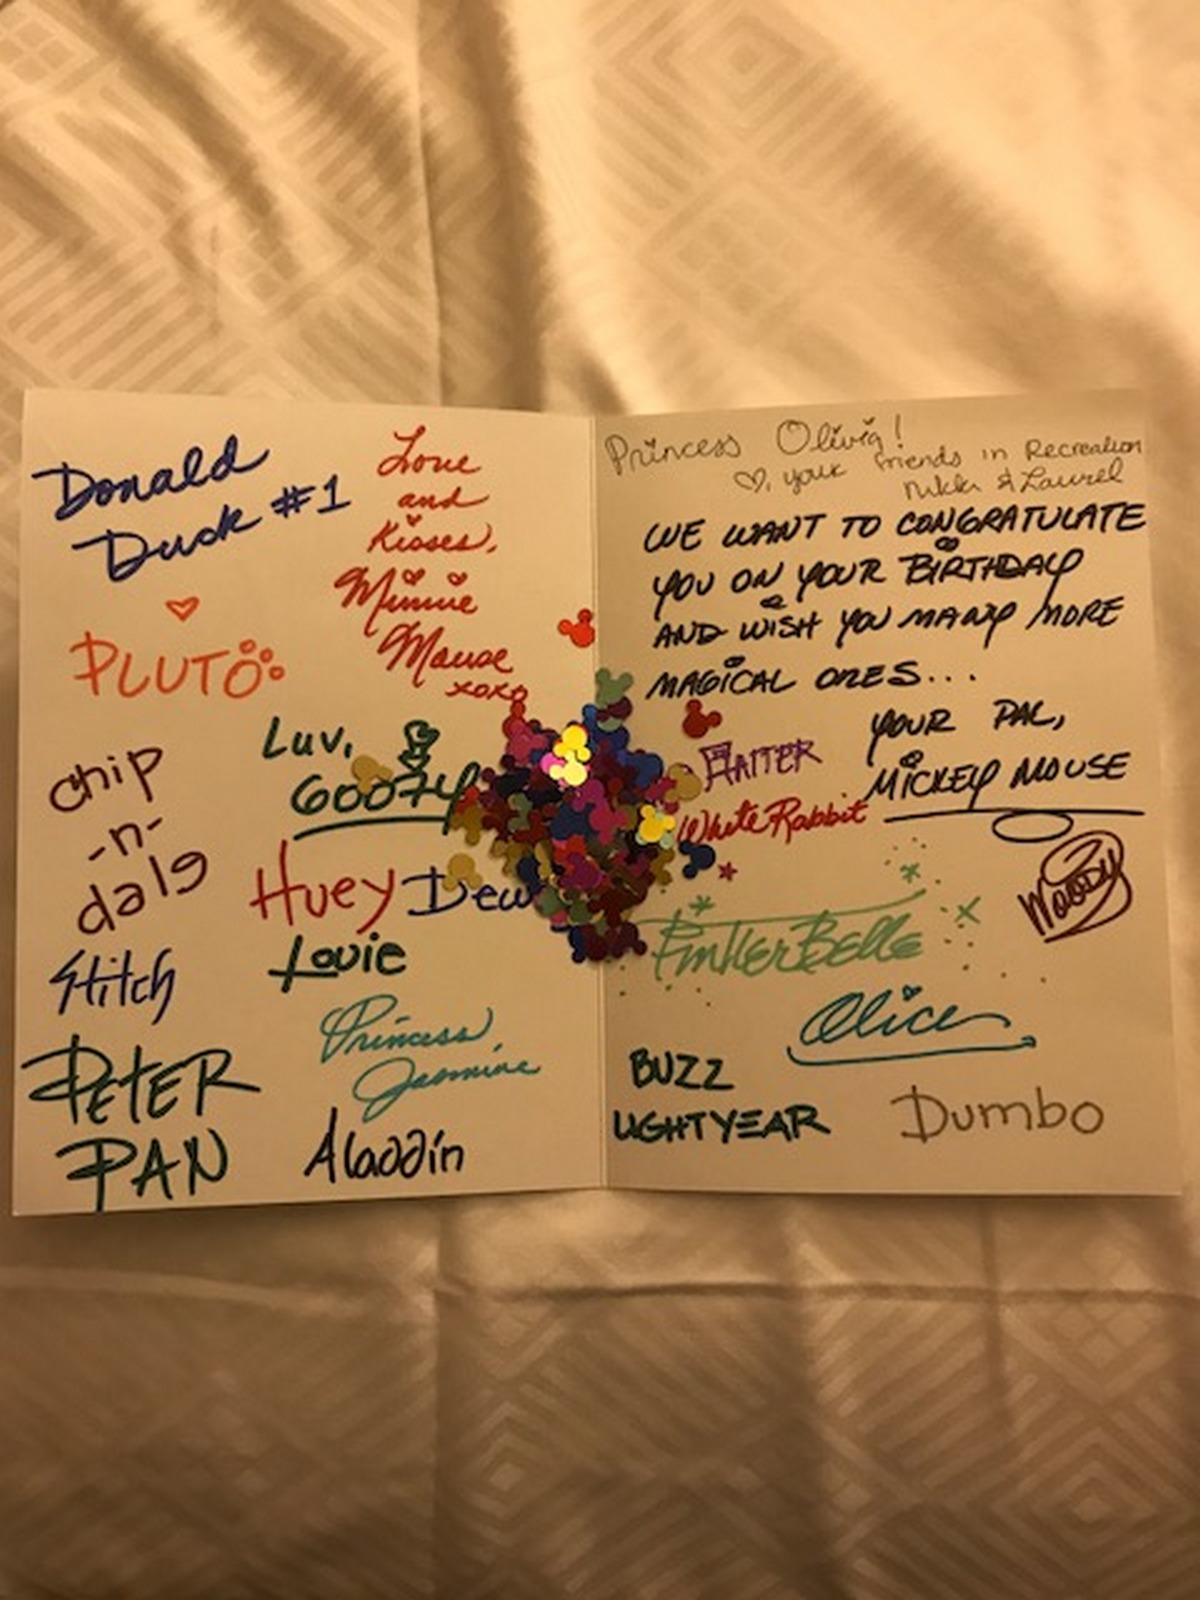 Donald
Duck #1
Love
and
Kisses,
Minnie
Mouse
xoxo
PLUTO
Luv,
GOOFY
Chip
-n-
dale
Huey Dew
Louie
Stitch
Princess
Jasmine
PETER
PAN
Aladdin
Princess Olivia!
♡, your friends in Recreation
Nikki & Laurel
WE WANT TO CONGRATULATE
YOU ON YOUR BIRTHDAY
AND WISH YOU MANY MORE
MAGICAL ONES...
YOUR PAL,
MICKEY MOUSE
HATTER
White Rabbit
Woody
TinkerBelle
Alice
BUZZ
LIGHTYEAR
Dumbo